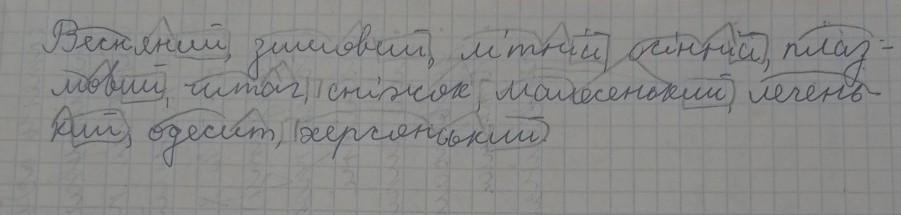 Весняний, зимовий, літній, осінній, плаз-
мовий, читач, сніжок, малесенький, лечень-
кий, одесит, херсонський